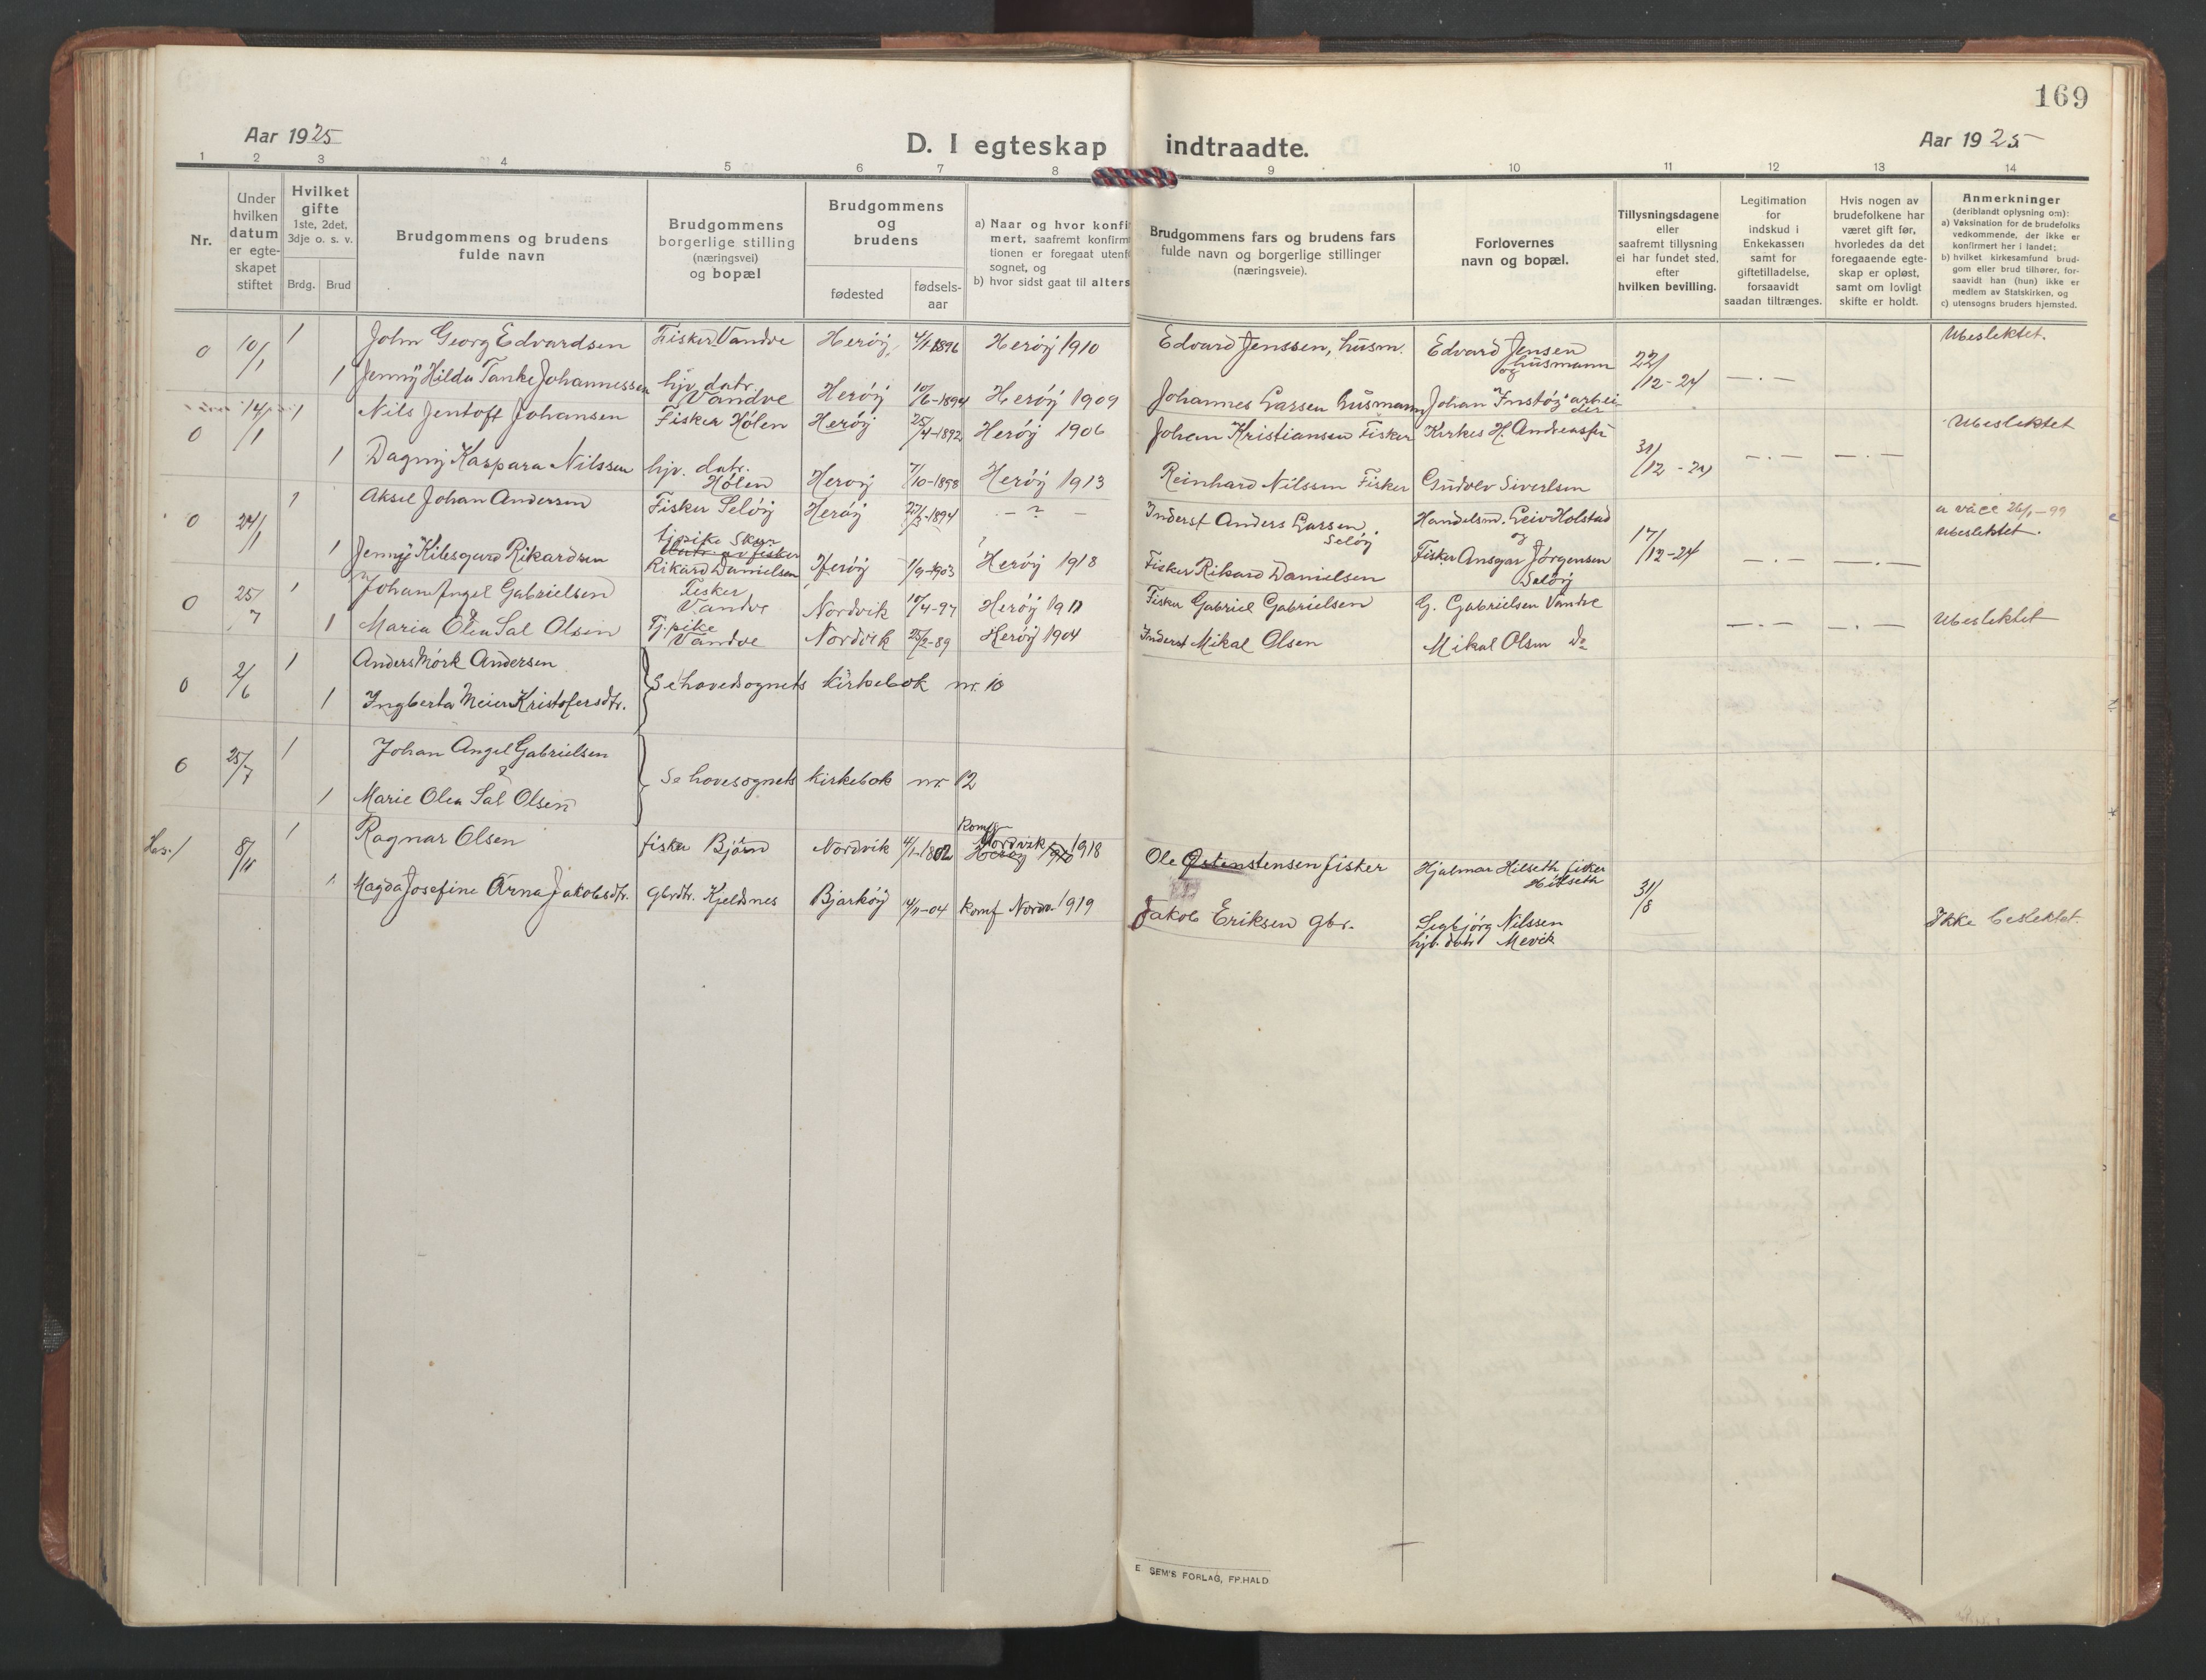 169
Aar 1925
D. I egteskap indtraadte.
Aar 1925
1 2 3 4 5 6 7 8 9 10 11 12 13 14
Nr.
Under
hvilken
datum
er egte-
skapet
stiftet
Hvilket
gifte
1ste, 2det,
3dje o. s. v.
Brdg. Brud
Brudgommens og brudens
fulde navn
Brudgommens
borgerlige stilling
(næringsvei)
og bopæl
Brudgommens
og
brudens
fødested
fødsels-
aar
a) Naar og hvor konfi
mert, saafremt konfirm
tionen er foregaat utenf
sognet, og
b) hvor sidst gaat til alters
Brudgommens fars og brudens fars
fulde navn og borgerlige stillinger
(næringsveie).
Forlovernes
navn og bopæl.
Tillysningsdagene
eller
saafremt tillysning
ei har fundet sted,
efter
hvilken bevilling.
Legitimation
for
indskud i
Enkekassen
samt for
giftetilladelse,
forsaavidt
saadan tiltrænges.
Hvis nogen av
brudefolkene har
været gift før,
hvorledes da det
foregaaende egte-
skap er opløst,
samt om lovligt
skifte er holdt.
Anmerkninger
(deriblandt oplysning om):
a) Vaksination for de brudefolks
vedkommende, der ikke er
konfirmert her i landet;
b) hvilket kirkesamfund brud-
gom eller brud tilhører, for-
saavidt han (hun) ikke er
medlem av Statskirken, og
c) utensogns bruders hjemsted.
0 10/1 1 John Georg Edvardsen Fisker Vandve Herøy 4/1-1896 Herøy 1910 Edvard Jenssen, husm. Edvard Jensen husmann og 22/12-24 Ubeslektet.
1 Jenny Hilda Tanke Johannessen hjv. datr. Vandve Herøy 10/6-1894 Herøy 1909 Johannes Larsen Husmann Johan Instøy arbeider — . —
0 14/1 1 Nils Jentoft Johansen Fisker Hølen Herøy 25/4-1892 Herøy 1906 Johan Kristiansen Fisker Kirkes. H. 31/12-24 Ubeslektet
1 Dagny Kaspara Nilssen hjv. datr. Hølen Herøy 7/10-1898 Herøy 1913 Reinhard Nilssen Fisker Gudolv Sivertsen — . — — . —
0 24/1 1 Aksel Johan Andersen Fisker Seløy Herøy 27/3-1894 - ? - Inderst Anders Larsen Seløy Handelsm. Leiv Holstad og 17/12-24 26/1-99 Ubeslektet.
1 Jenny Rikardsen tjpike datr. av fisker Rikard Danielsen Herøy 1/9-1903 Herøy 1918 Fisker Rikard Danielsen Fisker Ansgar Jørgensen Seløy — . — — . —
0 25/7 1 Johan Angel Gabrielsen Fisker Vandve Nordvik 10/4-97 Herøy 1911 Fisker Gabriel Gabrielsen G. Gabrielsen Vandve Ubeslektet
1 Maria Olea Sal Olsen Tj.pike Vandve Nordvik 25/2-89 Herøy 1904 Inderst Mikal Olsen Mikal Olsen Do — . — — . —
0 2/6 1 Anders Mørk Andersen
1 Ingberta Meier Kristofersdtr. Se hovedsognets Kirkebok nr. 10
0 25/7 1 Johan Angel Gabrielsen
&
1 Marie Olea Sal Olsen Se hovesognets Kirkebok nr. 12
8/11 1 Ragnar Olsen fisker Bjørn Nordvik Komf Nordvik 1918 Ole Østenstensen fisker Hjalmar Hilseth fisker Hilseth 31/8
1 Magda Josefine Arna Jakobsdtr. Gbrdtr. Kjeldsnes Bjarkøy 14/11-04 Komf Nordv. 1919 Jakob Eriksen Gbr. Sigbjørg Nilssen hjv. datr Mevik Ikke beslektet.
E. SEM'S FORLAG, FR.HALD